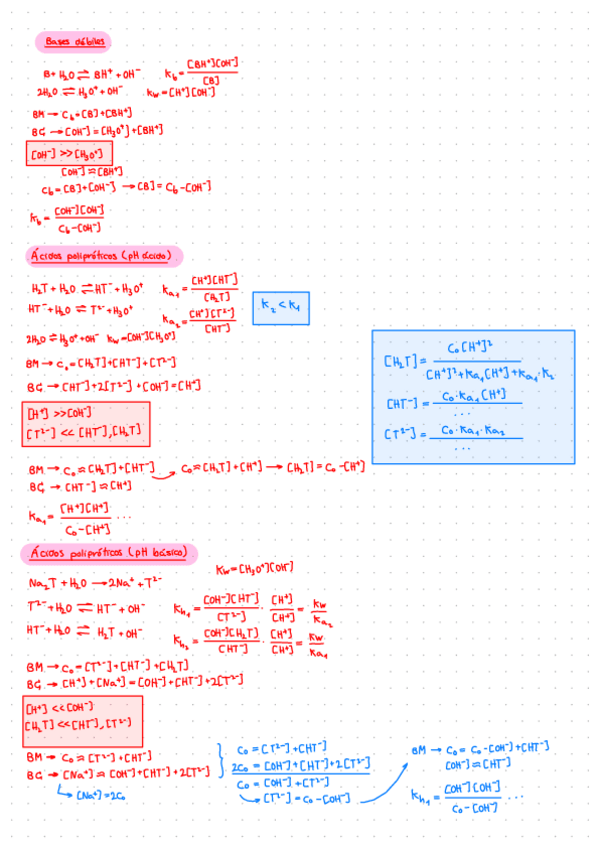 Bases débiles
B+H₂O ⇌ BH⁺+OH⁻   K_b = [BH⁺][OH⁻] / [B]
2H₂O ⇌ H₃O⁺+OH⁻   Kw=[H⁺][OH⁻]
BM → C_b=[B]+[BH⁺]
BC → [OH⁻]=[H₃O⁺]+[BH⁺]
[OH⁻]>>[H₃O⁺]
[OH⁻]≈[BH⁺]
C_b=[B]+[OH⁻] → [B]=C_b-[OH⁻]
K_b = [OH⁻][OH⁻] / C_b-[OH⁻]
Ácidos polipróticos (pH ácido)
H₂T+H₂O ⇌ HT⁻+H₃O⁺   Ka₁ = [H⁺][HT⁻] / [H₂T]
HT⁻+H₂O ⇌ T²⁻+H₃O⁺   Ka₂ = [H⁺][T²⁻] / [HT⁻]
K₂<K₁
2H₂O ⇌ H₃O⁺+OH⁻   Kw=[OH⁻][H₃O⁺]
BM → C₀=[H₂T]+[HT⁻]+[T²⁻]
BC → [HT⁻]+2[T²⁻]+[OH⁻]=[H⁺]
[H₂T] = C₀[H⁺]² / [H⁺]²+Ka₁[H⁺]+Ka₁·K₂
[HT⁻] = C₀·Ka₁[H⁺] / ...
[T²⁻] = C₀·Ka₁·Ka₂ / ...
[H⁺]>>[OH⁻]
[T²⁻]<<[HT⁻],[H₂T]
BM → C₀≈[H₂T]+[HT⁻] → C₀≈[H₂T]+[H⁺] → [H₂T]=C₀-[H⁺]
BC → [HT⁻]≈[H⁺]
Ka₁ = [H⁺][H⁺] / C₀-[H⁺] ...
Ácidos polipróticos (pH básico)
Kw=[H₃O⁺][OH⁻]
Na₂T+H₂O → 2Na⁺+T²⁻
T²⁻+H₂O ⇌ HT⁻+OH⁻   Kh₁ = [OH⁻][HT⁻] / [T²⁻] · [H⁺] / [H⁺] = Kw / Ka₂
HT⁻+H₂O ⇌ H₂T+OH⁻   Kh₂ = [OH⁻][H₂T] / [HT⁻] · [H⁺] / [H⁺] = Kw / Ka₁
BM → C₀=[T²⁻]+[HT⁻]+[H₂T]
BC → [H⁺]+[Na⁺]=[OH⁻]+[HT⁻]+2[T²⁻]
[H⁺]<<[OH⁻]
[H₂T]<<[HT⁻],[T²⁻]
BM → C₀≈[T²⁻]+[HT⁻]
BC → [Na⁺]≈[OH⁻]+[HT⁻]+2[T²⁻]
↳ [Na⁺]=2C₀
C₀=[T²⁻]+[HT⁻]
2C₀=[OH⁻]+[HT⁻]+2[T²⁻]
C₀=[OH⁻]+[T²⁻]
↳ [T²⁻]=C₀-[OH⁻]
BM → C₀=C₀-[OH⁻]+[HT⁻]
[OH⁻]≈[HT⁻]
Kh₁ = [OH⁻][OH⁻] / C₀-[OH⁻] ...